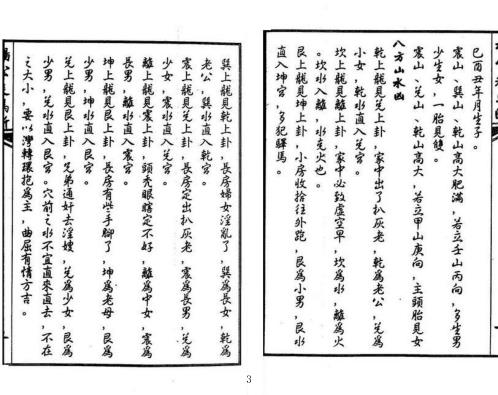 巳酉丑年月生子。
震山、巽山、乾山高大肥滿，若立壬山丙向，多生男
少生女，一胎見雙。
震山、兌山、乾山高大，若立甲山庚向，主頭胎見女
八方山水凶
乾上龍見兌上卦，家中出了扒灰老，乾為老公，兌為
小女，乾水直入兌宮。
坎上龍見離上卦，家中必致虛空早，坎為水，離為火
。坎水入離，水先火也。
艮上龍見坤上卦，小房收拾往外跑，艮為小男，艮水
直入坤宮，多犯驛馬。
巽上龍見乾上卦，長房婦女淫亂了，巽為長女，乾為
老公，巽水直入乾宮。
震上龍見兌上卦，長房定出扒灰老，震為長男，兌為
少女，震水直入兌宮。
離上龍見震上卦，頭禿眼瞎定不好，離為中女，震為
長男，離水直入震宮。
坤上龍見艮上卦，長房有些手腳了，坤為老母，艮為
少男，坤水直入艮宮。
兌上龍見艮上卦，兄弟通奸去淫嫂，兌為少女，艮為
少男，兌水直入艮宮。穴前之水不宜直來直去，不在
之大小，要以灣轉環抱為主，曲屈有情方吉。
3